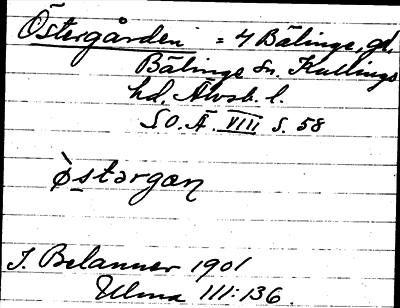 Östergården = 4 Bälinge, gd,
Bälinge sn. Kullings
hd, Älvsb. l.
S.O.Ä. VIII s. 58
östərgan
J. Belanner 1901
Ulma 111:136.